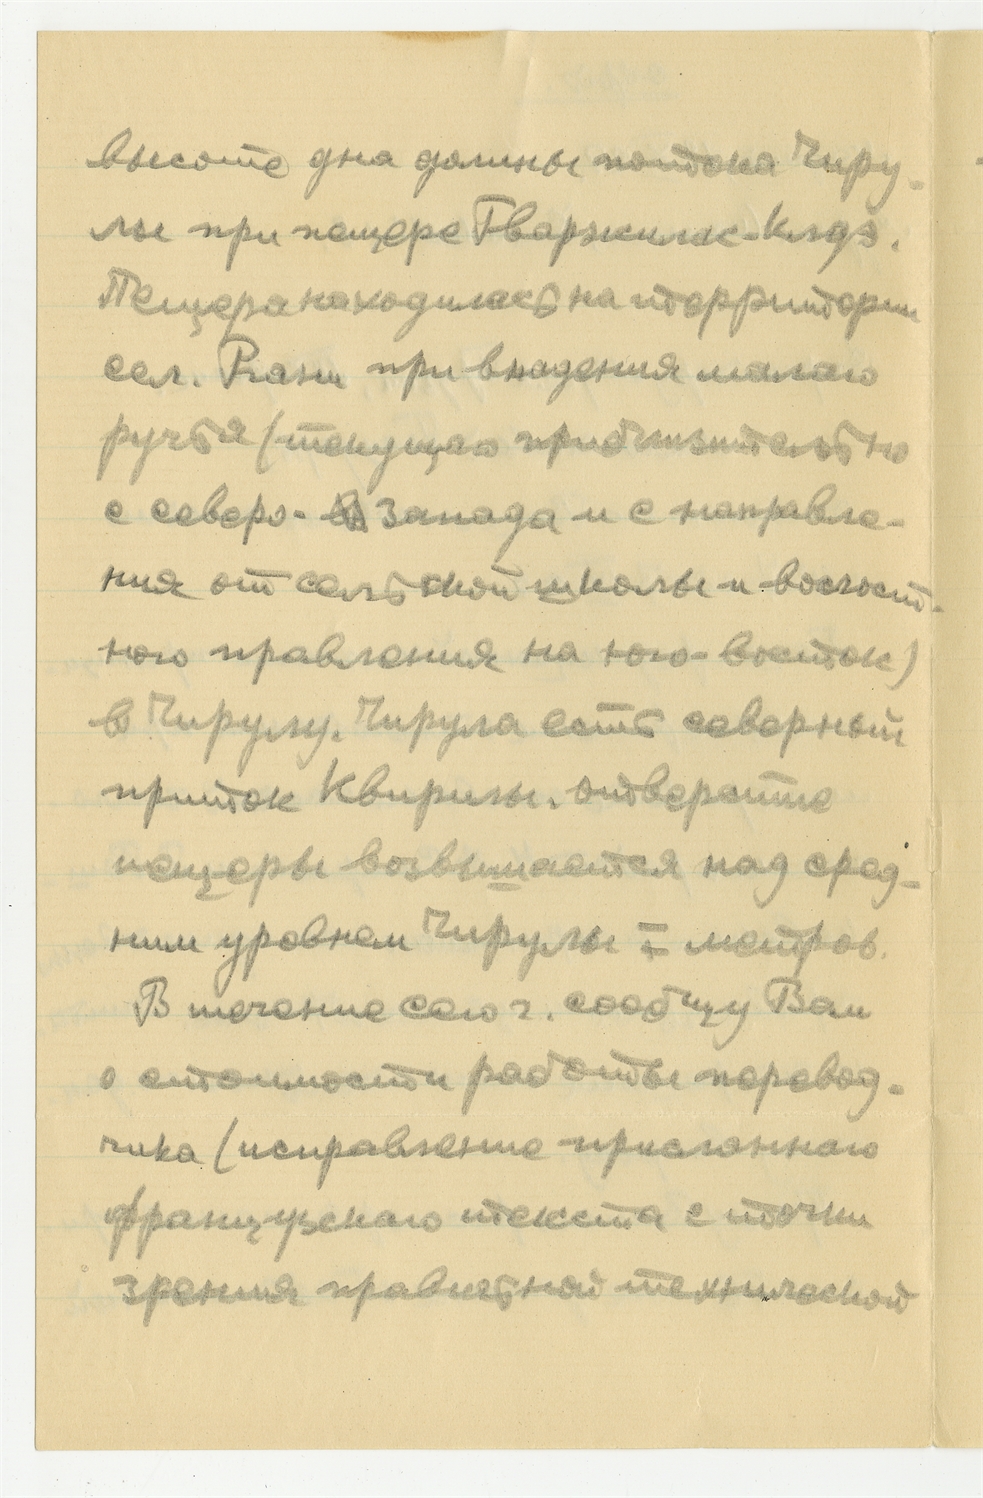 высоте дна долины потока Чиру-
лы при пещере Гварджилас-Клдэ.
Пещера находилась на территории
сел. Ргани при впадения малаго
ручья (текущаго приблизительно
с северо- запада и с направле-
ния от сельской школы и
ного правления на юго-восток)
в Чирулу. Чирула есть северный
приток Квирилы. Отверстие
пещеры возвышается над сред-
ним уровнем Чирулы метров.
В течение сего г. сообщу Вам
о стоимости работы перевод-
чика (исправление присланнаго
французскаго текста с точки
зрения правильной технической